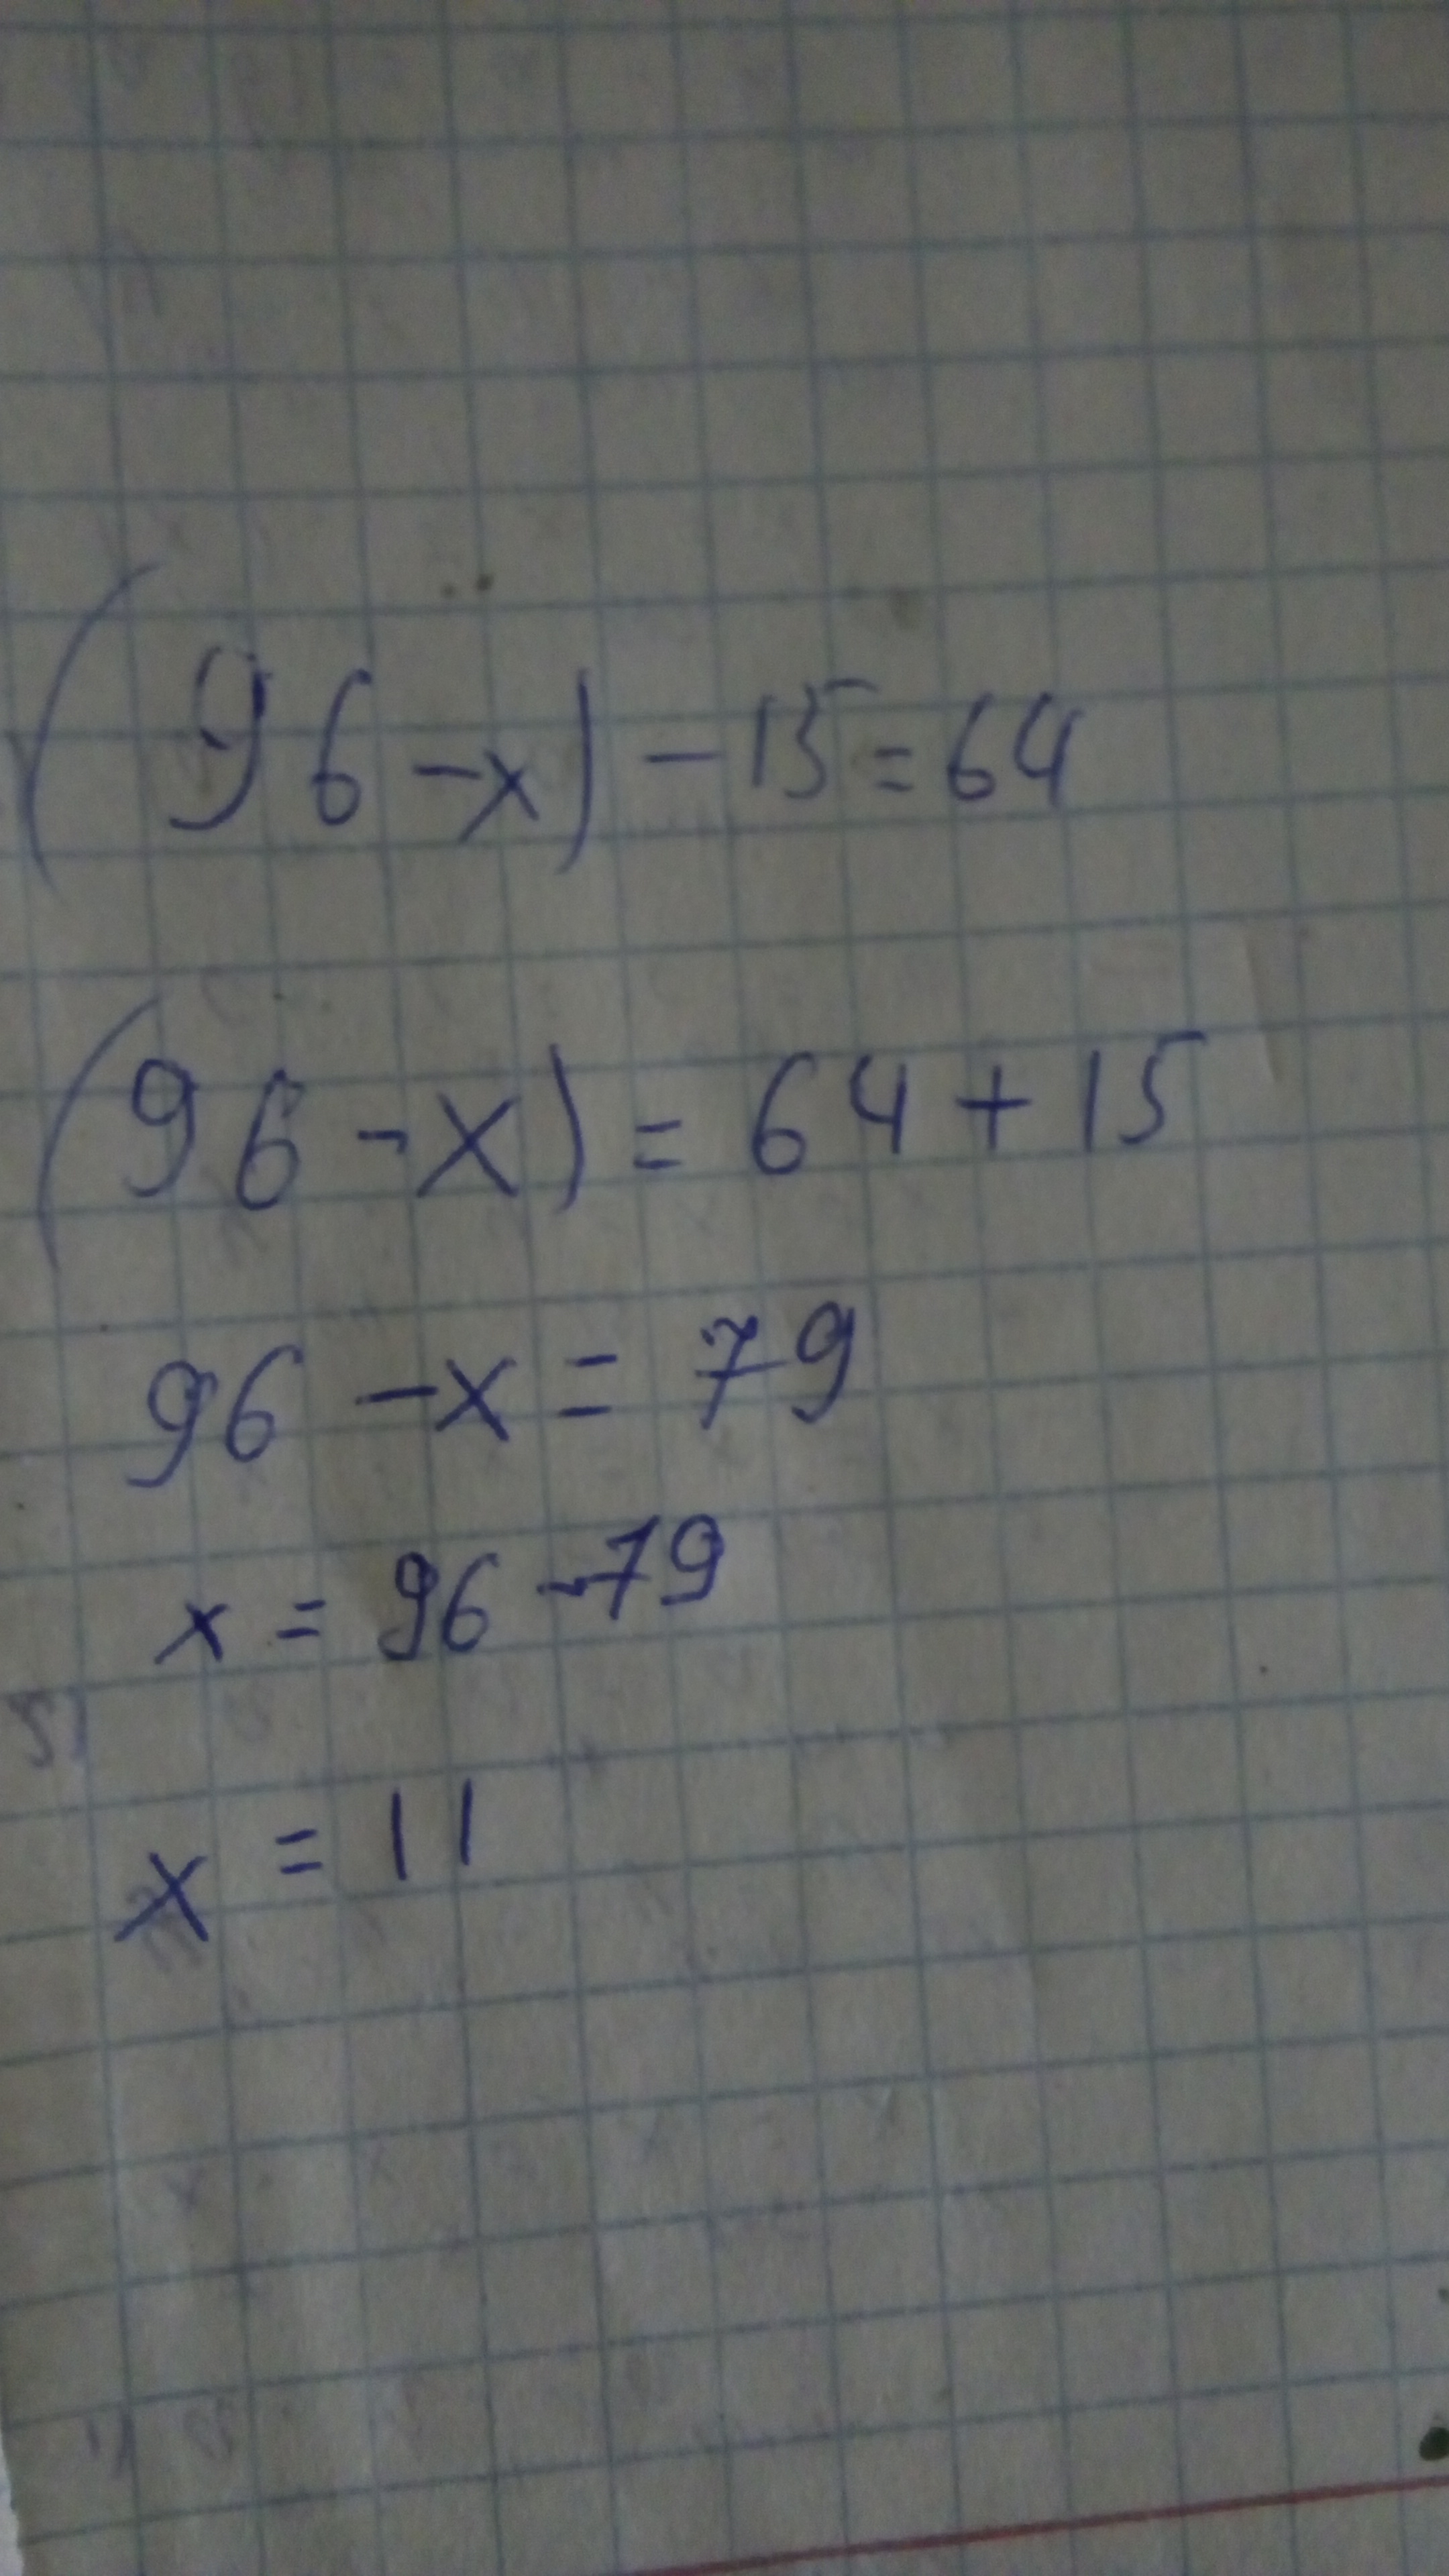 (96-x)-15=64
(96-x)=64+15
96-x=79
x=96-79
x=11